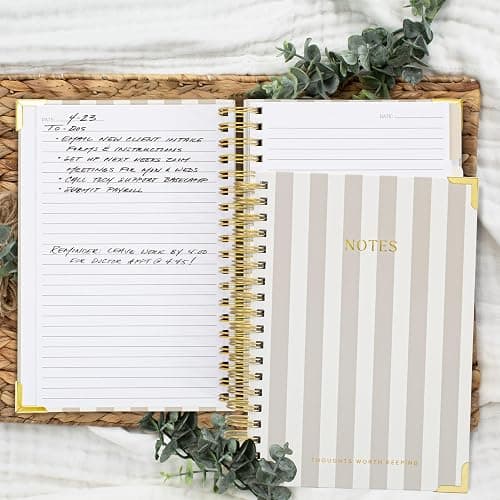 DATE: 4-23
TO-DOS
• EMAIL NEW CLIENT INTAKE
FORMS & INSTRUCTIONS
• SET UP NEXT WEEKS ZOOM
MEETINGS FOR MON & WEDS
• CALL TECH SUPPORT BASECAMP
• SUBMIT PAYROLL
REMINDER: LEAVE WORK BY 4:00
FOR DOCTOR APPT @ 4:45!
DATE:
NOTES
THOUGHTS WORTH KEEPING